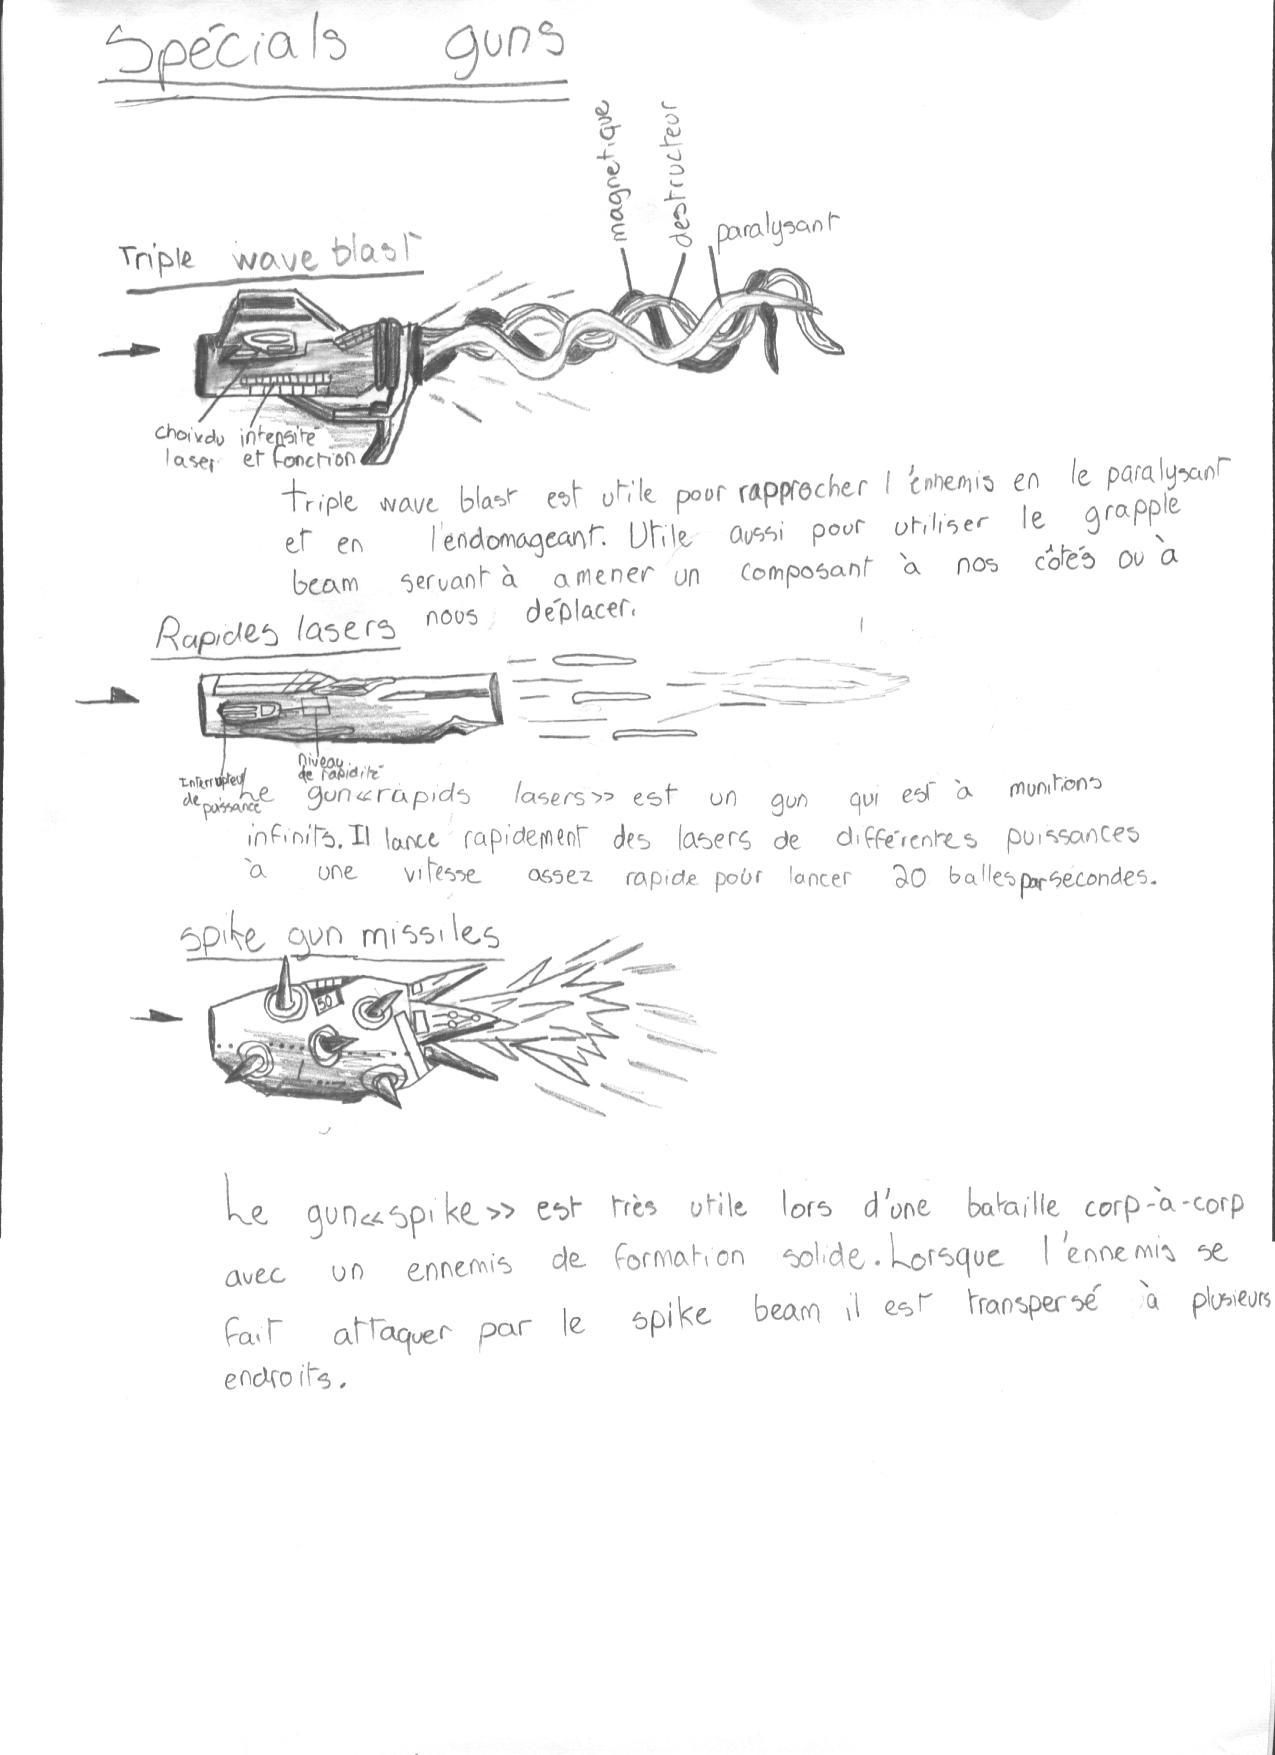 Spécials guns
magnetique
destructeur
paralysant
Triple wave blast
choix du
laser
intensité
et fonction
triple wave blast est utile pour rapprocher l'énnemis en le paralysant
et en l'endomageant. Utile aussi pour utiliser le grapple
beam servant à amener un composant à nos côtés ou à
nous déplacer.
Rapides lasers
Interrupteur
de puissance
niveau
de rapidité
Le gun «rapids lasers» est un gun qui est à munitions
infinits. Il lance rapidement des lasers de différentes puissances
à une vitesse assez rapide pour lancer 20 balles par secondes.
spike gun missiles
50
Le gun «spike» est très utile lors d'une bataille corp-à-corp
avec un ennemis de formation solide. Lorsque l'ennemis se
fait attaquer par le spike beam il est transpersé à plusieurs
endroits.